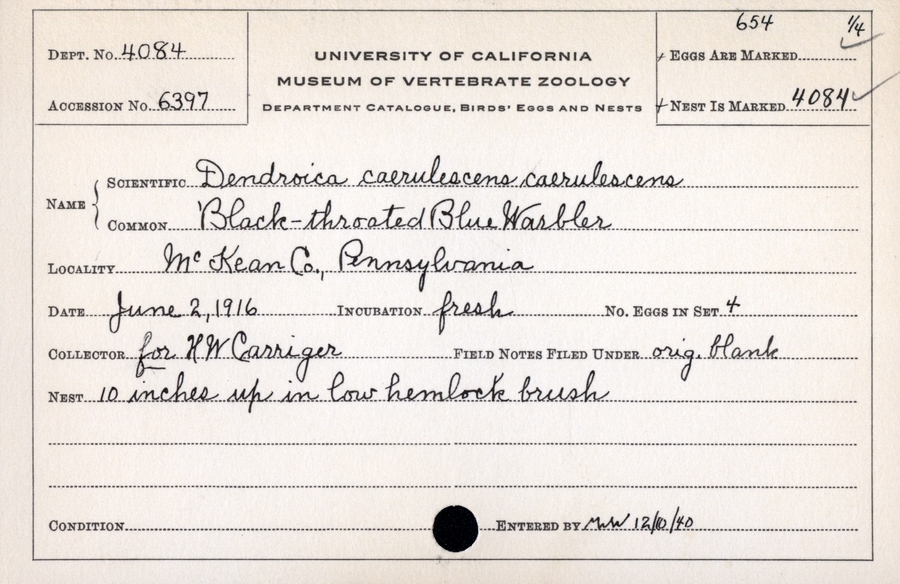 654 1/4
Dept. No. 4084
UNIVERSITY OF CALIFORNIA
Eggs Are Marked
MUSEUM OF VERTEBRATE ZOOLOGY
Accession No. 6397
Department Catalogue, Birds' Eggs and Nests
Nest Is Marked 4084
Name
Scientific Dendroica caerulescens caerulescens
Common Black-throated Blue Warbler
Locality McKean Co., Pennsylvania
Date June 2, 1916 Incubation fresh No. Eggs in Set 4
Collector for H W Carriger Field Notes Filed Under orig. blank
Nest 10 inches up in low hemlock brush
Condition Entered by 12/10/40